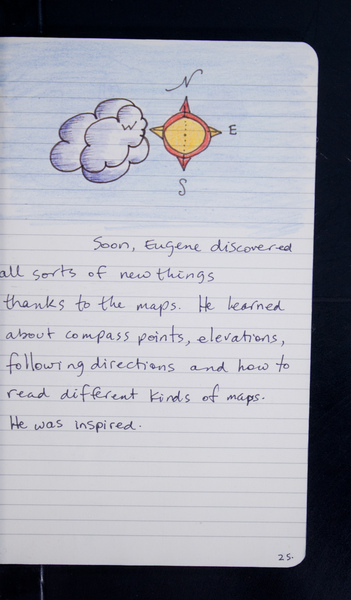 N
W
E
S
Soon, Eugene discovered
all sorts of new things
thanks to the maps. He learned
about compass points, elevations,
following directions and how to
read different kinds of maps.
He was inspired.
25.